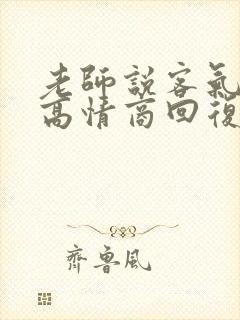 老師說客氣
高情商回復
齊魯風